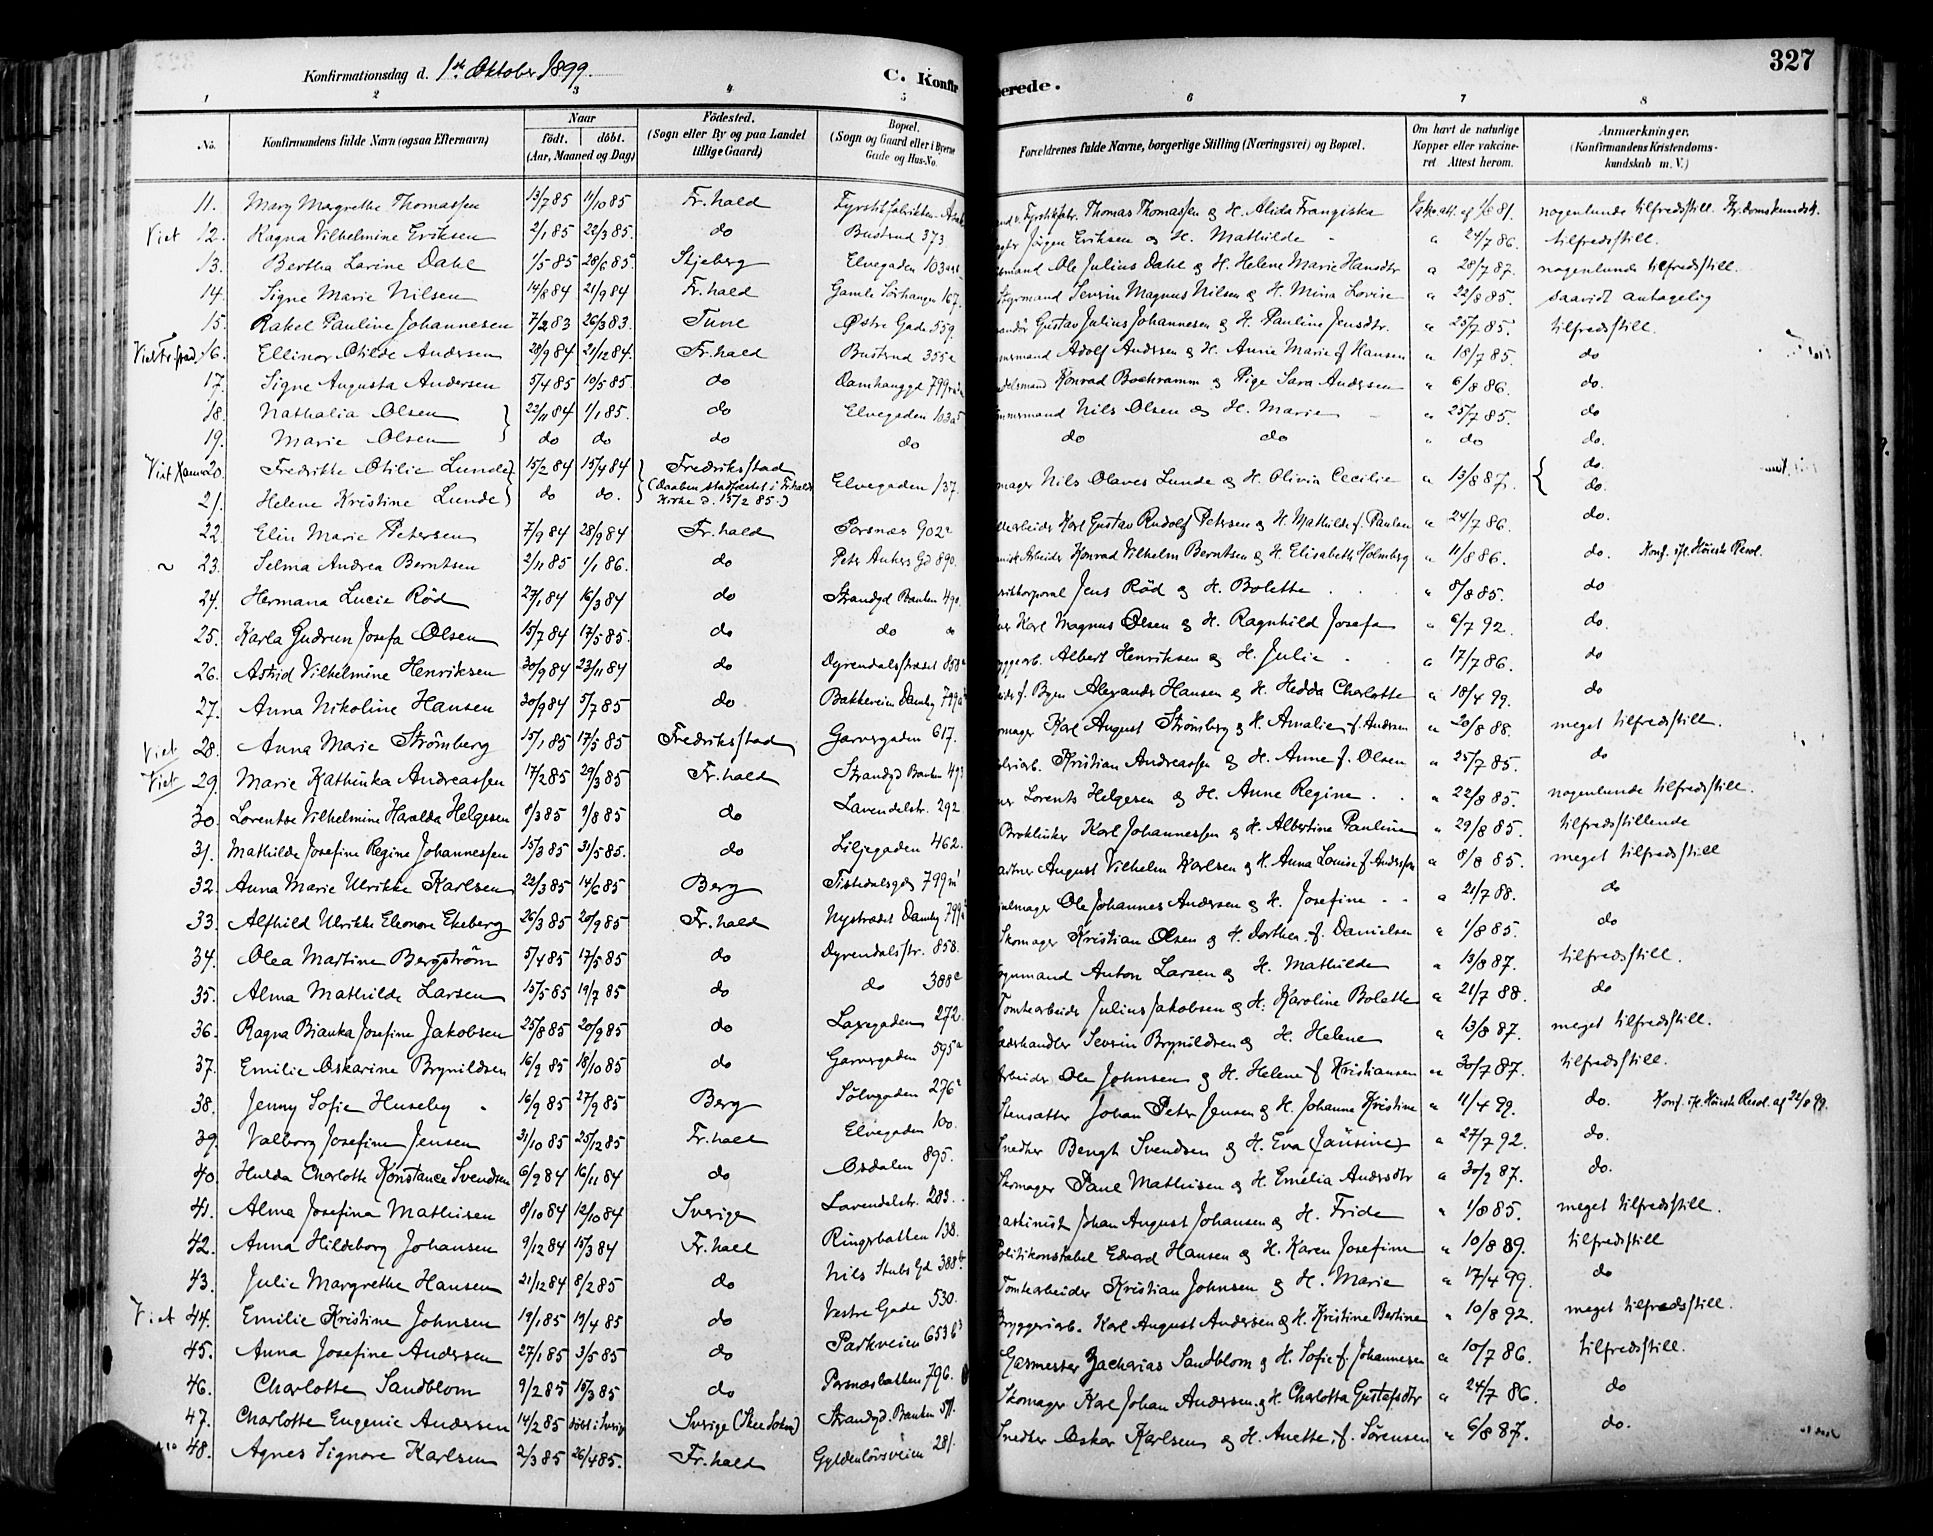 327
Konfirmationsdag d. 1ste Oktober 1899.
C. Konfir
erede.
1 2 3 4 5 6 7 8
No.
Konfirmandens fulde Navn (ogsaa Efternavn)
Naar
födt. döbt.
(Aar, Maaned og Dag)
Födested.
(Sogn eller By og paa Landet
tillige Gaard)
Bopæl.
(Sogn og Gaard eller i Byerne
Gade og Hus-No.
Forældrenes fulde Navne, borgerlige Stilling (Næringsvei) og Bopæl.
Om havt de naturlige
Kopper eller vakcine-
ret Attest herom.
Anmærkninger.
(Konfirmandens Kristendoms-
kundskab m. V.)
11. Mary Margrethe Thomassen 13/7 85 11/10 85 Fr.hald Thomas Thomassen & H. Alida Franziska nogenlunde tilfredsstill.
Viet 12. Ragna Vilhelmine Eriksen 2/1 85 22/3 85. do Busterud 373 Jörgen Eriksen & H. Mathilde " 24/7 86. tilfredsstill.
13. Bertha Larine Dahl 1/5 85 28/6 85. Skjeberg Elvegaden Ole Julius Dahl & H. Helene Marie Hansdtr " 28/7 87. nogenlunde tilfredsstill.
14. Signe Marie Nilsen 14/8 84 21/9 84 Fr.hald Gamle 167. Styrmand Severin Magnus Nilsen & H. Mina Lovise " 22/8 85. saavidt antagelig
15. Rakel Pauline Johannesen 7/2 83 26/3 83. Tune Østre Gade 559. Gustav Julius Johannesen & H. Pauline Jensdtr. " 25/7 85. tilfredsstill.
16. Ellinor Otilde Andersen 28/9 84 21/12 84. Fr.hald Busterud 355a Adolf Andersen & H. Anne Marie f. Hansen " 18/7 85. do
17. Signe Augusta Andersen 5/4 85 10/5 85. do Konrad Bochramm & Pige Sara Andersen " 6/8 86. do.
18. Nathalia Olsen 22/11 84 1/1 85. do Elvegaden Nils Olsen & H. Marie " 25/7 85. do
19. Marie Olsen do do do do do do " do do.
20. Fredrikke Otilie Lunde 15/2 84 15/4 84 Fredriksstad Elvegaden 137. Nils Olaves Lunde & H. Olivia Cecilie " 13/8 87. do.
21. Helene Kristine Lunde do do. (Daaben stadfæstet i Fr.halds Kirke d. 15/2 85.) do.
22. Elin Marie Petersen 7/9 84 28/9 84 Fr.hald Porsnæs 902a Karl Gustav Rudolf Petersen & H. Mathilde f. Paulsen " 24/7 86. do.
23. Selma Andrea Berntsen 2/11 85 1/1 86. do Peter Ankers Gd 890. Konrad Vilhelm Berntsen & H. Elisabeth Holmberg " 11/8 86. do. Konf. ifl. Höieste Resol.
24. Hermana Lucie Rød 27/1 84 16/3 84 do Strandgd Banken 490. Jens Rød & H. Bolette " 8/8 85. do
25. Karla Gudrun Josefa Olsen 15/7 84 17/5 85. do do do Karl Magnus Olsen & H. Ragnhild Josefa " 6/7 92. do.
26. Astrid Vilhelmine Henriksen 30/9 84 23/11 84 do Dyrendalsstrædet 858 Albert Henriksen & H. Julie " 17/7 86. do
27. Anna Nikoline Hansen 30/9 84 5/7 85 do Bakkeveien Damhg 799 Alexander Hansen & H. Hedda Charlotte " 18/4 99. do
Viet 28. Anna Marie Strömberg 15/1 85 17/5 85 Fredriksstad Garvergaden 617. Karl August Strömberg & H. Amalie f. Andersen " 20/8 88. meget tilfredsstill.
Viet 29. Marie Kathinka Andreassen 17/2 85 29/3 85 Fr.hald Strandgd Banken 493 Kristian Andreassen & H. Anne f. Olsen " 25/7 85. do
30. Lorentse Vilhelmine Haralda Helgesen 8/3 85 9/8 85 do Lavendelstr. 292 Lorents Helgesen & H. Anne Regine " 22/8 85. nogenlunde tilfredsstill.
31. Mathilde Josefine Regine Johannessen 15/3 85 31/5 85. do Liljegaden 462. Karl Johannessen & H. Albertine Pauline " 29/8 85. tilfredsstillende
32. Anna Marie Ulrikke Karlsen 22/3 85 14/6 85 Berg Tistedalsgdg 799 August Vilhelm Karlsen & H. Anna Louise f. Andersen " 8/8 85. meget tilfredsstill
33. Alfhild Ulrikke Eleonore Ekeberg 26/3 85 20/9 85 Fr.hald Nystrædet Damhg 799 Ole Johannes Andersen & H. Josefine " 21/7 88. do
34. Olea Martine Bergström 5/4 85 17/5 85 do Dyrendalsstr. 858. Skomager Kristian Olsen & H. Dorthea f. Danielsen " 1/8 85. do
35. Alma Mathilde Larsen 15/5 85 19/7 85 do do 388c Anton Larsen & H. Mathilde " 13/8 87. tilfredsstill.
36. Ragna Bianka Josefine Jakobsen 25/8 85 20/9 85 do 272. Tomtearbeider Julius Jakobsen & H. Karoline Bolette " 21/7 88. do
37. Emilie Oskarine Brynildsen 16/9 85 18/10 85 do Garvergaden 595a Severin Brynildsen & H. Helene " 13/8 87. meget tilfredsstill.
38. Jenny Sofie Huseby 16/9 85 27/9 85 Berg Sölvgaden 276 Arbeider Ole Johnsen & H. Helene f. Kristiansen " 30/7 87. tilfredsstill.
39. Valborg Josefine Jensen 31/10 85 25/12 85 Fr.hald Elvegaden 100. Stensætter Johan Peter Jensen & H. Johanne Kristine " 11/4 99. do. Konf. ifl. Höieste Resol. af 22/8 99.
40. Hulda Charlotte Konstance Svendsen 6/9 84 16/11 84 do Osdalen 895. Snedker Bengt Svendsen & H. Eva (Jansine) " 27/7 92. do.
41. Alma Josefina Mathisen 8/10 84 12/10 84 Sverige Lavendelstr. 283. Skomager Paul Mathisen & H. Emelia Andersdtr " 30/7 87. do.
42. Anna Hildeborg Johansen 9/12 84 15/3 84 Fr.hald Ringsbakken 138. Maskinist Johan August Johansen & H. Frida " 1/8 85. meget tilfredsstill.
43. Julie Margrethe Hansen 21/12 84 8/2 85 do Nils Stubs Gd 388 Politikonstabel Edvard Hansen & H. Karen Josefine " 10/8 89. tilfredsstill
Viet 44. Emilie Kristine Johnsen 19/1 85 19/4 85 do Vestre Gade 530. Tomtearbeider Kristian Johnsen & H. Marie " 17/4 99. do
45. Anna Josefine Andersen 27/1 85 3/5 85 do Parkveien 653 b3 Bryggeriarb. Karl August Andersen & H. Kristine Bertine " 10/8 92. meget tilfredsstill.
46. Charlotte Sandblom 9/2 85 15/3 85 do Porsnæsbakken 796. Garmester Zacharias Sandblom & H. Sofie f. Johannesen " 10/7 86. tilfredsstill.
47. Charlotte Eugenie Andersen 14/2 85 döbt i Sverige Sverige (Skee Sokn) Strandgd. Banken 511. Skomager Karl Johan Andersen & H. Charlotta Gustafsdtr " 24/7 86. do
48. Agnes Signore Karlsen 2/3 85 26/4 85. Fr.hald Gyldenlövsveien 281. Snedker Oskar Karlsen & H. Anette f. Sörensen " 6/8 87. do.